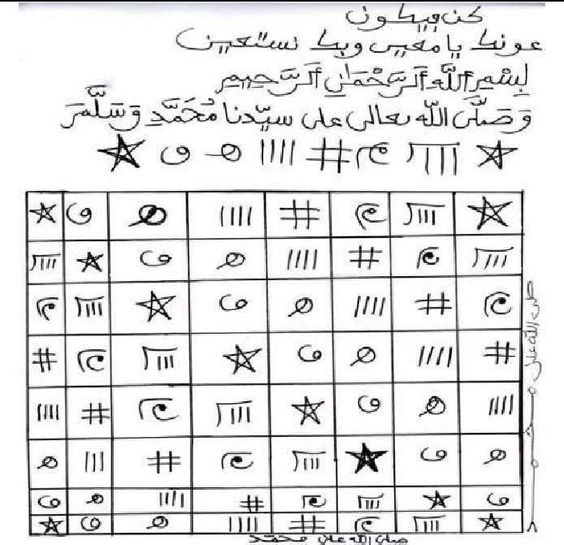 كن فيكون
عونك يا معين وبك نستعين
بِسْمِ اللَّهِ الرَّحْمَٰنِ الرَّحِيمِ
وَصَلَّى اللَّه تعالى على سيّدنا مُحَمَّدٍ وَسَلَّمَ
صلى الله على م ح م د
صلى الله على محمد